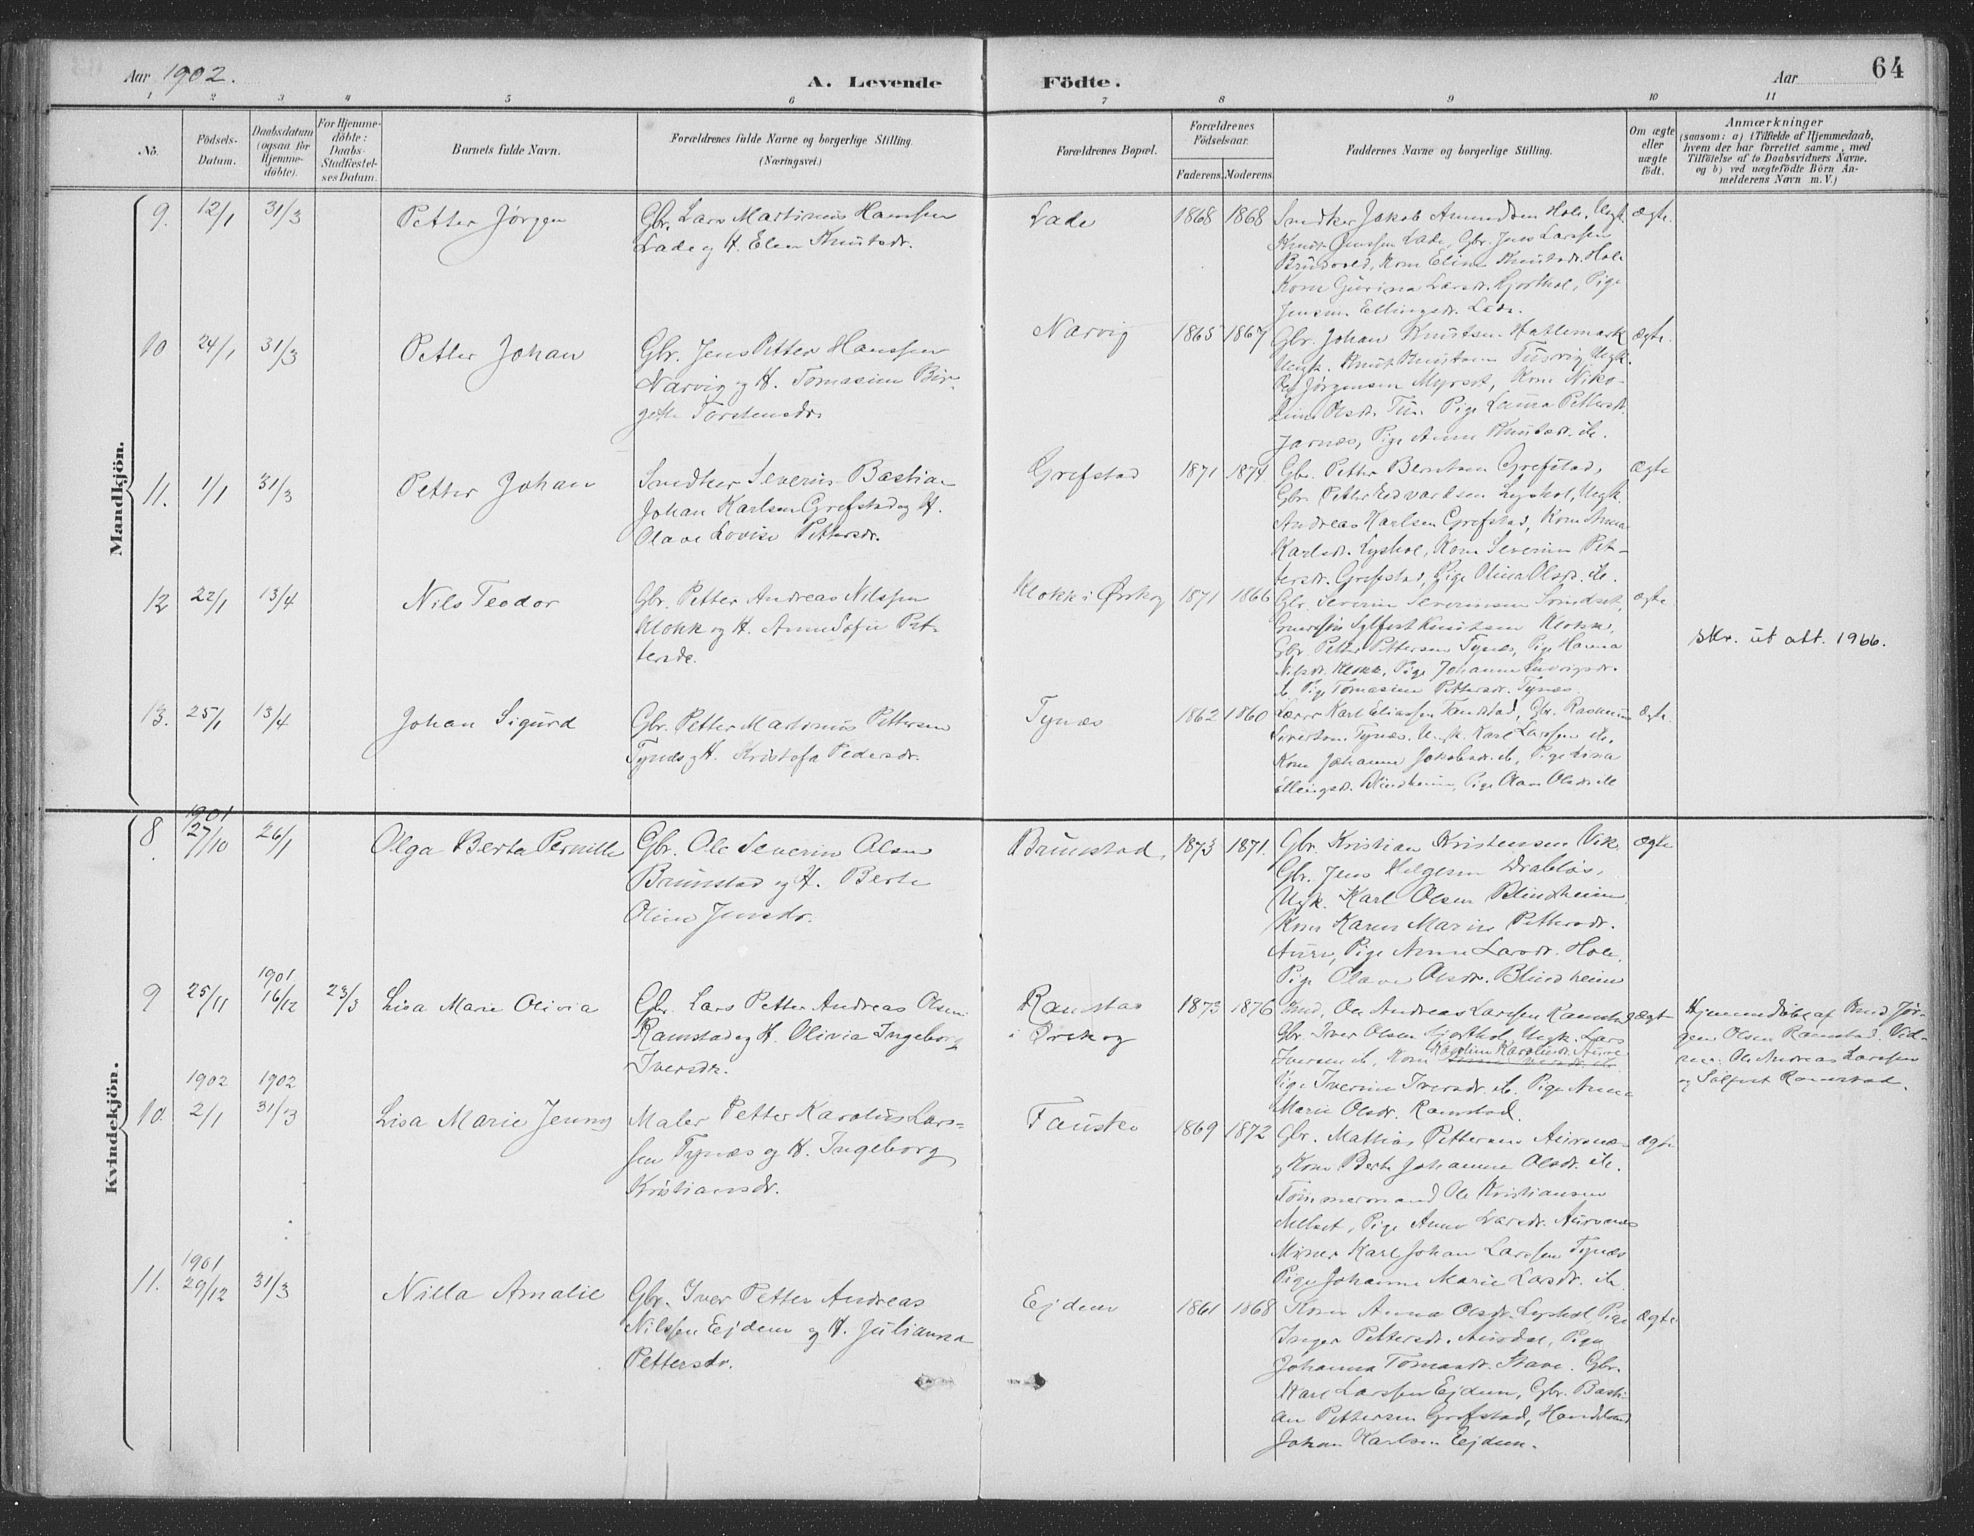 Aar 1902.
A. Levende Födte.
Aar
64
1 2 3 4 5 6 7 8 9 10 11
No.
Födsels-
Datum.
Daabsdatum
(ogsaa for
Hjemme-
döbte).
For Hjemme-
döbte:
Daabs-
Stadfæstel-
ses Datum.
Barnets fulde Navn.
Forældrenes fulde Navne og borgerlige Stilling.
(Næringsvei.)
Forældrenes Bopæl.
Forældrenes
Födselsaar.
Faderens. Moderens.
Faddernes Navne og borgerlige Stilling.
Om ægte
eller
uægte
födt.
Anmærkninger
(saasom: a) i Tilfælde af Hjemmedaab,
hvem der har forrettet samme, med
Tilföielse af to Daabsvidners Navne,
og b) ved uægtefödte Börn An-
melderens Navn m. V.)
Mandkjön.
9. 12/1 31/3 Petter Jørgen
Gbr. Lars Martinus Hansen
Lade og H. Elen Knutsdr.
Lade 1868 1868
Jakob Amundsen Hole, Ungk.
Knut Lade, Gbr. Jens Larssen
Brudvold, Kone Eline Knutsdr. Hole
Kone Gurina Larsdr. Gjorthol, Pige
Ellingsdr. Lade.
ægte.
10 24/1 31/3 Petter Johan
Gbr. Jens Petter Hanssen
Narvig og H. Tomasine Bir-
gette Torstensdr.
Narvig 1865 1867
Gbr. Johan Knutsen Hatlemark
Ungk. Knut Knutsen Tusvig, Ungk.
Jørgensen Myrset, Kone Niko-
line Olsdr. Pige Laura Pettersdr.
Jarnæs, Pige Anne Knutsdr. ib.
ægte.
11. 1/1 31/3 Petter Johan
Severin Bastian
Johan Karlsen Grefstad og H.
Olave Lovise Pettersdr.
Grefstad 1871 1874
Gbr. Petter Berntsen Grefstad,
Gbr. Petter Edvardsen Lyshol, Ungk.
Andreas Karlsen Grefstad, Kone Anna
Karlsdr. Lyshol, Kone Severine Pet-
tersdr. Grefstad, Pige Olina Olsdr. ib.
ægte
12 22/1 13/4 Nils Teodor
Gbr. Petter Andreas Nilssen
Klokk og H. Anne Sofie Pet-
tersdr.
Klokk i Ørskog 1871 1866
Gbr. Severin Severinsen
Sylfest Knutsen Klokk,
Gbr. Petter Pettersen Tynes, Pige Hanna
Nilsdr. Klokk, Pige Johanne Ludvigsdr.
ib. Pige Tomasine Pettersdr. Tynæs.
ægte.
skr. ut att. 1966.
13. 25/1 13/4 Johan Sigurd
Gbr. Petter Martinus Pettersen
Tynes og H. Kristofa Pedersdr.
Tynæs 1862 1860
Lærer Karl Eliassen Tandstad, Gbr. Rasmus
Sivertsen Tynæs. Ungk. Karl Larssen ib.
Kone Johanne Jakobsdr. ib, Pige Lina
Ellingsdr. Blindheim, Pige Olsdr. ib
ægte.
Kvindekjön.
8. 1901 27/10 26/1 Olga Berta Pernille
Gbr. Ole Severin Olsen
Brunstad og H. Berte
Oline Jensdr.
Brunstad. 1873 1871.
Gbr. Kristian Kristensen Vik.
Gbr. Jens Helgesen Drabløs,
Ungk. Karl Olsen Blindheim,
Kone Karen Marie Pettersdr.
Aure, Pige Anne Larsdr. Hole.
Pige Olave Olsdr. Blindheim
ægte
9 25/11 1901 16/12 23/3 Lisa Marie Olivia
Gbr. Lars Petter Andreas Olsen
Ramstad og H. Olivia Ingeborg
Iversdr.
Ramstad
i Ørskog
1873 1876
Ole Andreas Larssen Ramstad
Gbr. Iver Olsen Gjorthol, Ungk. Lars
Iversen ib, Kone Karoline Karolusdr. Aure
Pige Iverine Iversdr. ib. Pige Anna
Marie Olsdr. Ramstad.
ægte
Hjemmedöbt af Jør-
gen Olsen Ramstad. Vid-
ner: Ole Andreas Larssen
og Sylfest Ramstad.
10. 1902 2/1 1902 31/3 Lisa Marie Jenny
Maler Petter Karolus Lars-
sen Tynæs og H. Ingeborg
Kristiansdr.
Fauske 1869 1872
Gbr. Mathias Pettersen Aursnæs
og Kone Berte Johanne Olsdr. ib.
Tømmermand Ole Kristiansen
Melset, Pige Anne Larsdr. Aursnæs
Murer Karl Johan Larssen Tynæs
Pige Johanne Marie Larsdr. ib.
ægte
11. 1901 29/12 31/3 Nilla Amalie
Gbr. Iver Petter Andreas
Nilssen Ejdem og H. Julianna
Pettersdr.
Ejdem 1861 1868
Kone Anna Olsdr. Lyshol, Pige
Inger Pettersdr. Pige
Johanna Tomasdr. Stave. Gbr.
Karl Larssen Ejdem, Gbr. Basti-
an Pettersen Grefstad, Handelsmd.
Johan Karlsen Ejdem.
ægte